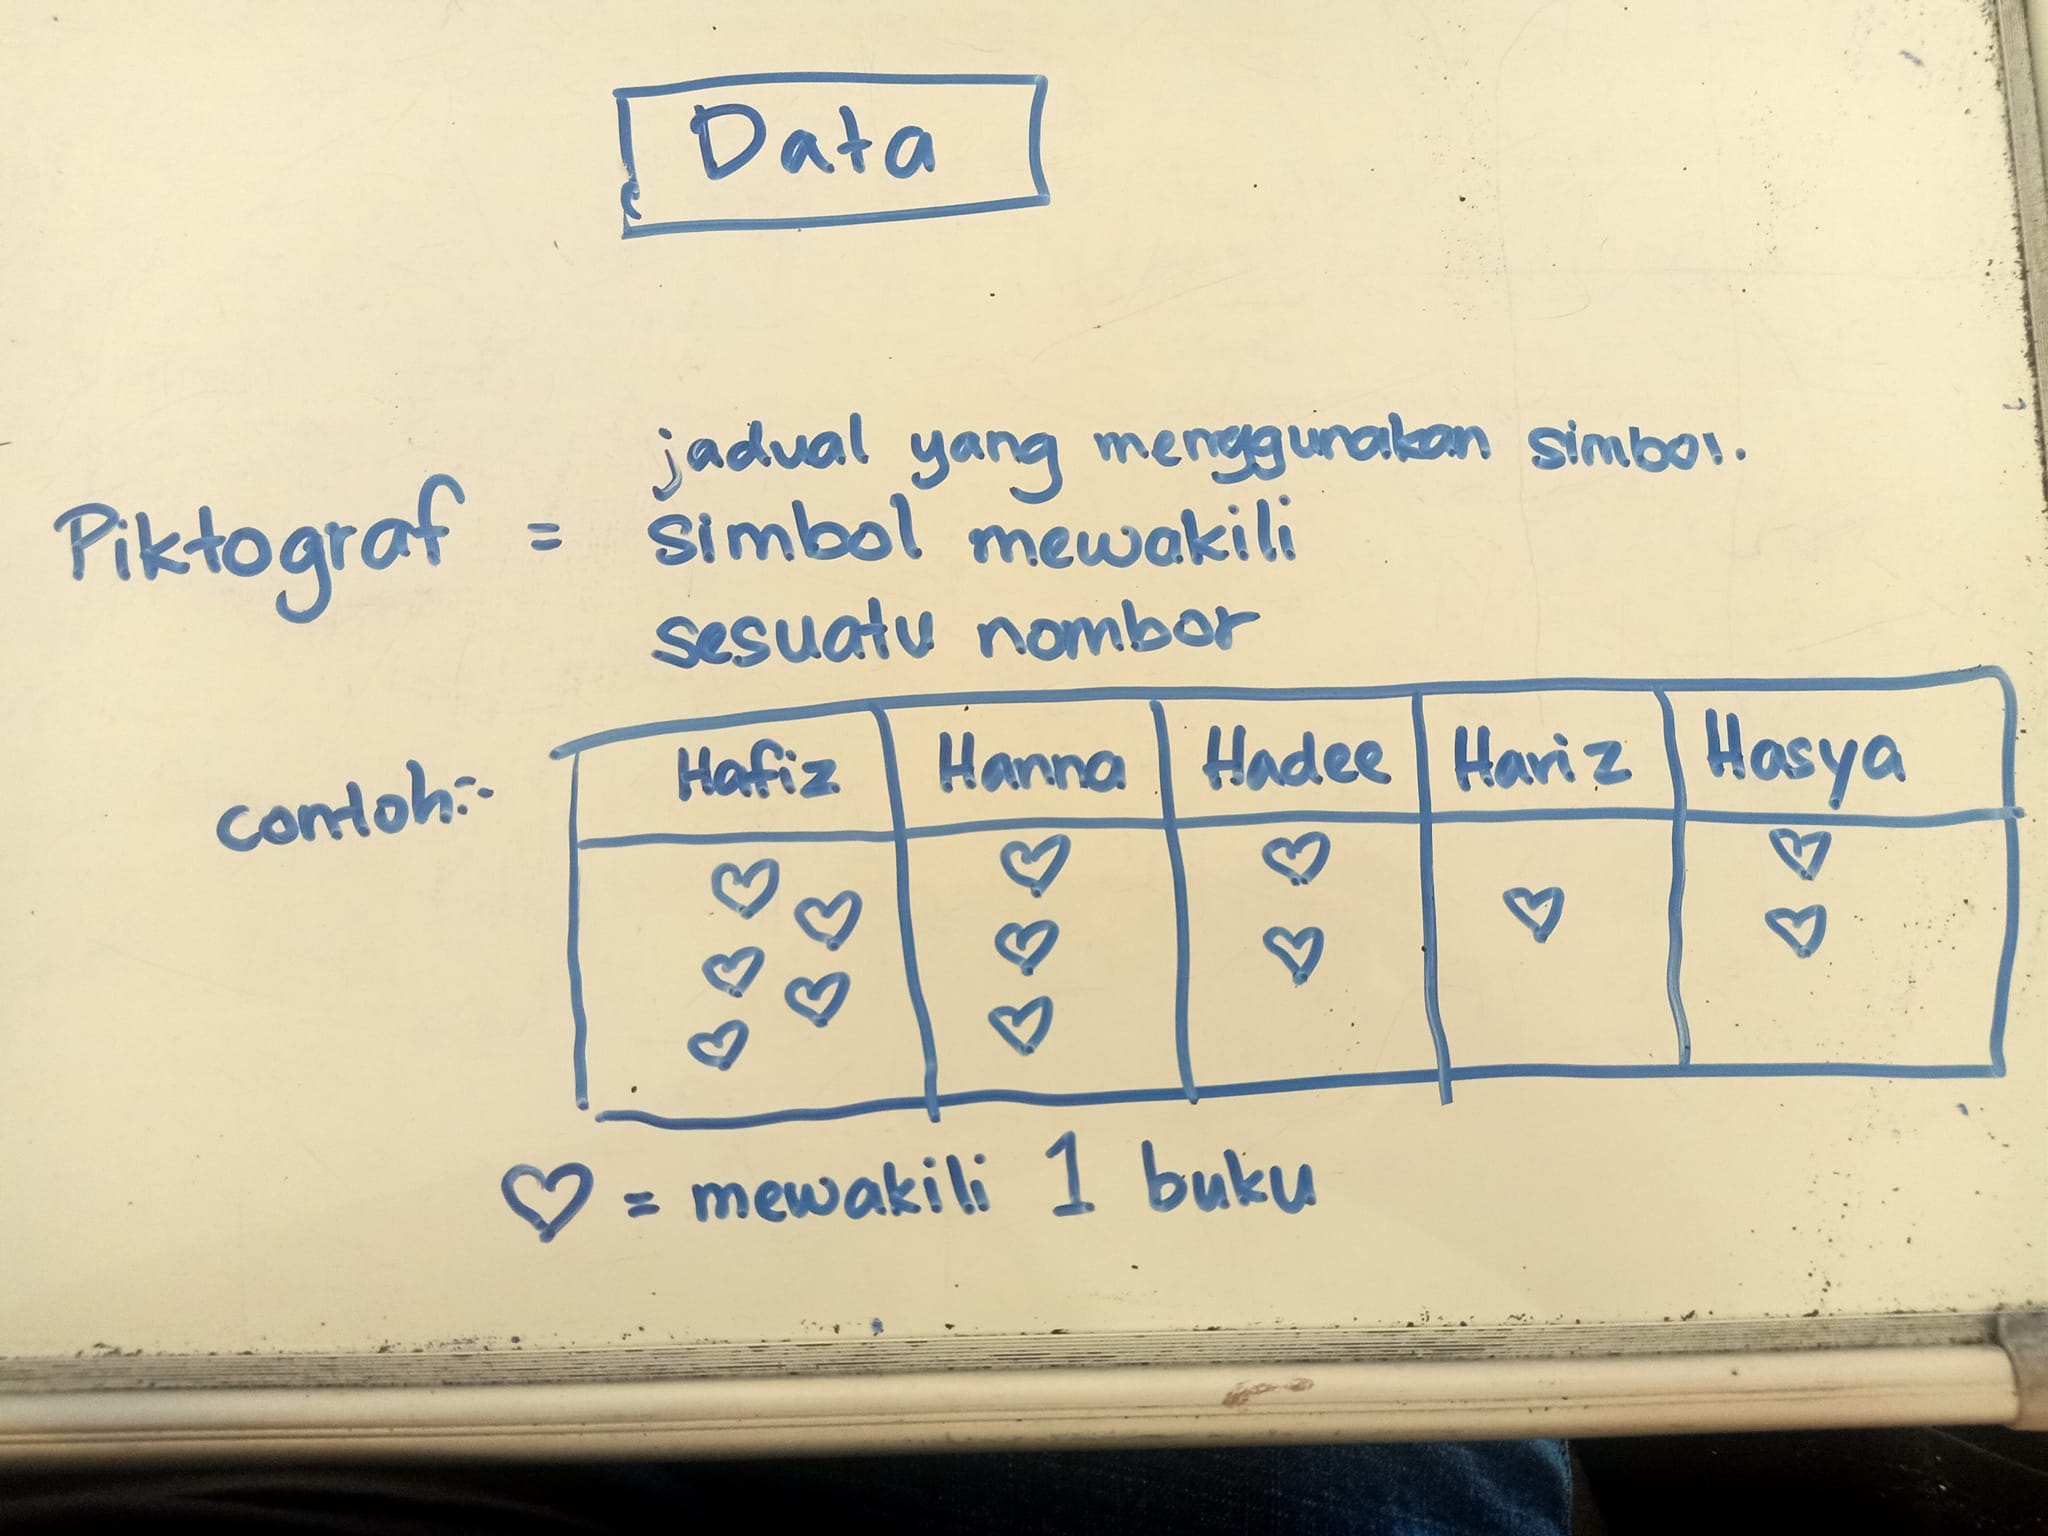 Data
jadual yang menggunakan simbol.
Piktograf = simbol mewakili
sesuatu nombor
contoh:-
Hafiz Hanna Hadee Hariz Hasya
♡ ♡ ♡ ♡ ♡
♡ ♡ ♡ ♡
♡ ♡
♡
♡
♡ = mewakili 1 buku